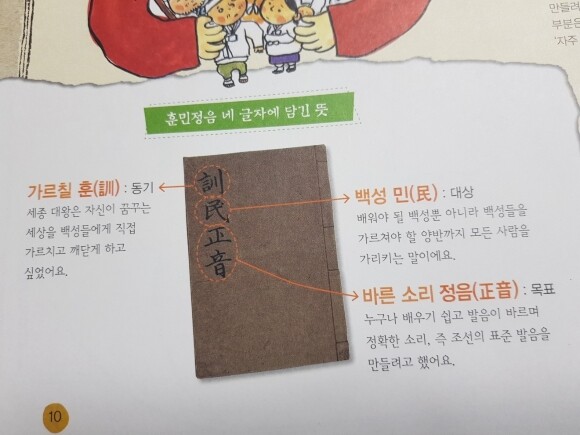 만들려
부분은
'자주
훈민정음 네 글자에 담긴 뜻
가르칠 훈(訓) : 동기
세종 대왕은 자신이 꿈꾸는
세상을 백성들에게 직접
가르치고 깨닫게 하고
싶었어요.
訓
民
正
音
백성 민(民) : 대상
배워야 될 백성뿐 아니라 백성들을
가르쳐야 할 양반까지 모든 사람을
가리키는 말이에요.
바른 소리 정음(正音) : 목표
누구나 배우기 쉽고 발음이 바르며
정확한 소리, 즉 조선의 표준 발음을
만들려고 했어요.
10